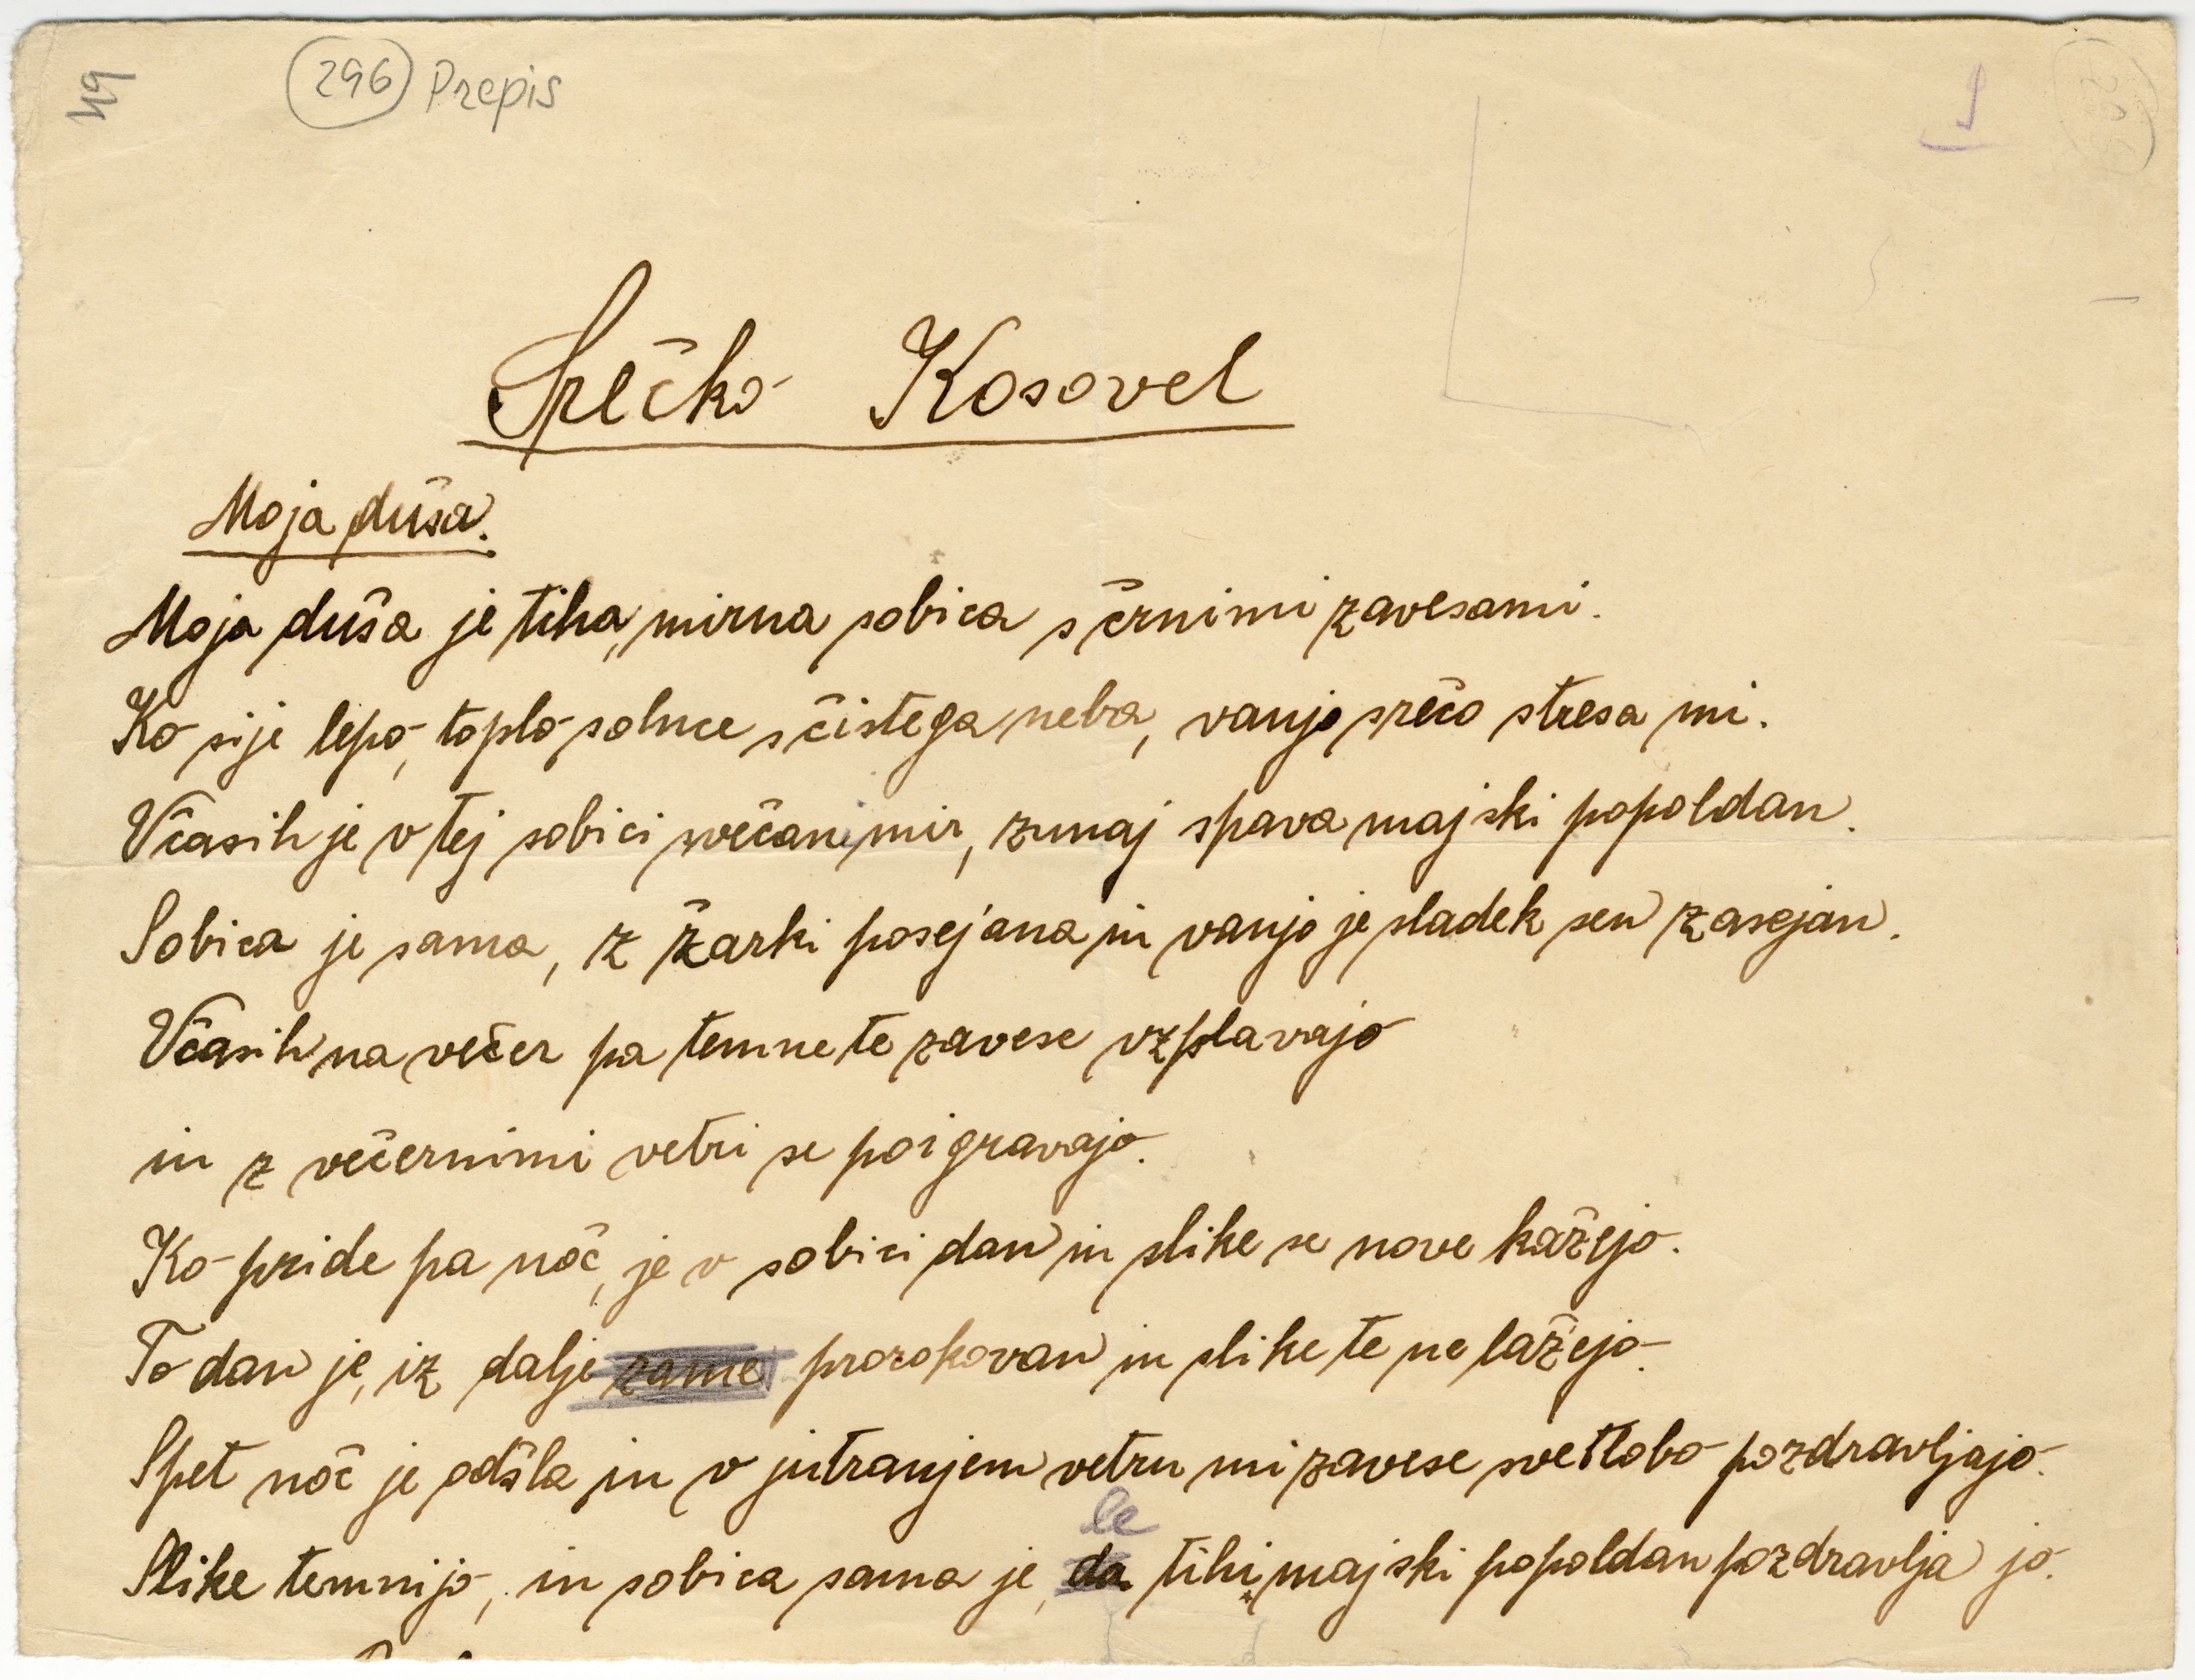 296 Prepis
49
1
Srečko Kosovel
Moja duša.
Moja duša je tiha, mirna sobica s črnimi zavesami.
Ko sije lepo, toplo solnce s čistega neba, vanjo srečo stresa mi.
Včasih je v tej sobici svečan mir, zunaj spava majski popoldan.
Sobica je sama, z žarki posejana in vanjo je sladek sen zasejan.
Včasih na večer pa temne te zavese vzplavajo
in z večernimi vetri se poigravajo.
Ko pride pa noč, je v sobici dan in slike se nove kažejo.
To dan je, iz dalje zame prorokovan in slike te ne lažejo.
Spet noč je odšla in v jutranjem vetru mi zavese svetlobo pozdravljajo.
le
Slike temnijo, in sobica sama je, da tihi majski popoldan pozdravlja jo.